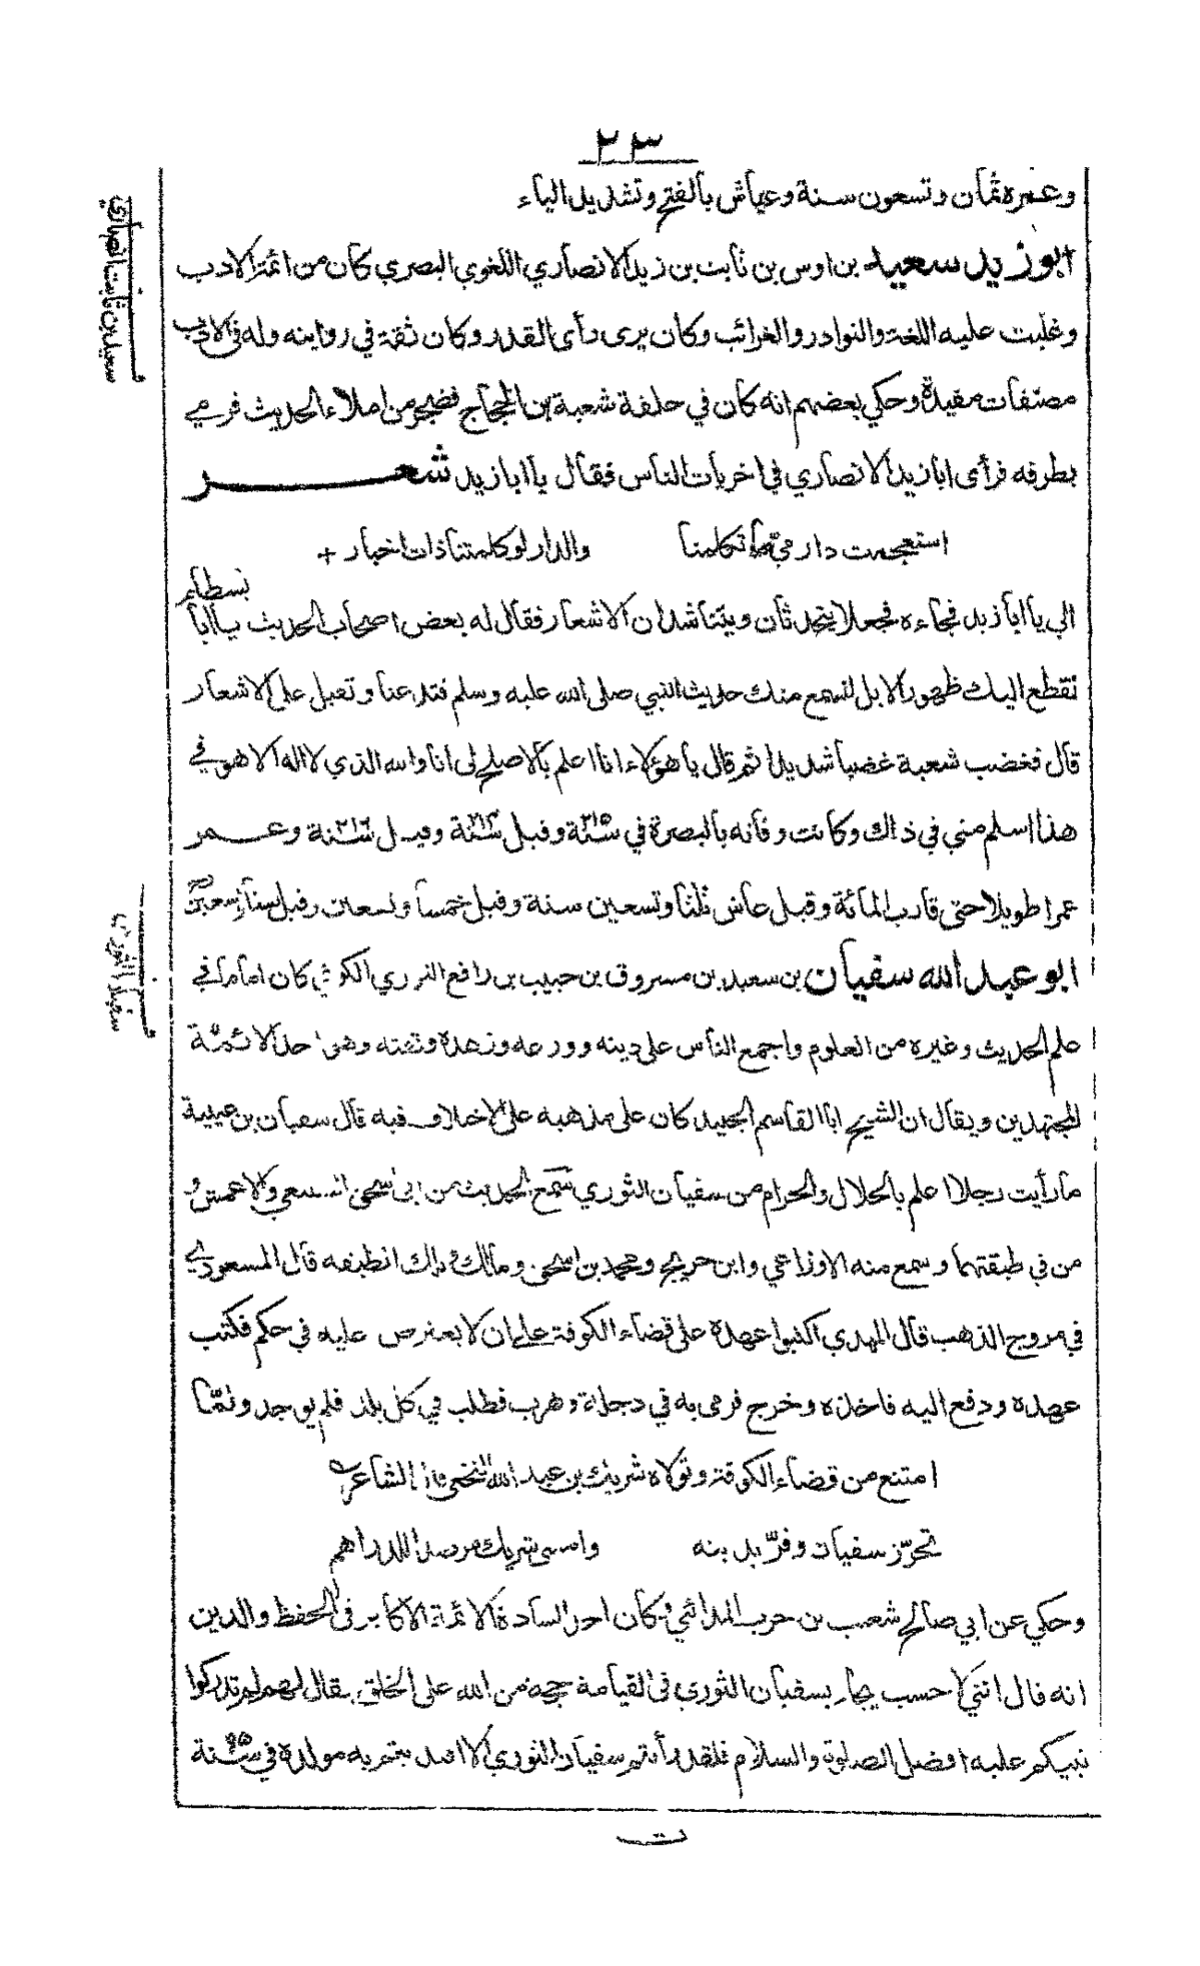 ٢٣
وعمره ثمان وتسعون سنة وعياش بالفتح وتشديد الياء
ابو زيد سعيد بن اوس بن ثابت بن زيد الانصاري اللغوي البصري كان من ائمة الادب
وغلبت عليه اللغة والنوادر والغرائب وكان يرى رأى القدر وكان ثقة في روايته وله في الادب
مصنفات مفيدة وحكي بعضهم انه كان في حلقة شعبة بن الحجاج فضجر من املاء الحديث فرمي
بطرفه فرأى ابا زيد الانصاري في اخريات الناس فقال يا ابا زيد شعر
استعجمت دار مي ما تكلمنا والدار لو كلمتنا ذات اخبار +
الي يا ابا زيد فجاءه فجعلا يتحدثان ويتناشدان الاشعار فقال له بعض اصحاب الحديث يا ابا بسطام
نقطع اليك ظهور الابل لنسمع منك حديث النبي صلى الله عليه وسلم فتدعنا وتقبل على الاشعار
قال فغضب شعبة غضبا شديدا ثم قال يا هؤلاء انا اعلم بالاصلح لى انا والله الذي لا اله الا هو في
هذا اسلم مني في ذاك وكانت وفاته بالبصرة في سنة ٢١٥ وقيل سنة ٢١٤ وقيل سنة ٢١٦ وعمر
عمرا طويلا حتى قارب المائة وقيل عاش ثلثا وتسعين سنة وقيل خمسا وتسعين وقيل ستا وتسعين
ابو عبد الله سفيان بن سعيد بن مسروق بن حبيب بن رافع الثوري الكوفي كان اماما في
علم الحديث وغيره من العلوم واجمع الناس على دينه وورعه وزهده وثقته وهو احد الائمة
المجتهدين ويقال ان الشيخ ابا القاسم الجنيد كان على مذهبه على الاختلاف فيه قال سفيان بن عيينة
ما رأيت رجلا اعلم بالحلال والحرام من سفيان الثوري سمع الحديث من ابي اسحق السبيعي والاعمش و
من في طبقتهما وسمع منه الاوزاعي وابن جريج ومحمد بن اسحق ومالك وتلك الطبقه قال المسعودي
في مروج الذهب قال المهدي اكتبوا عهده على قضاء الكوفة على ان لا يعترض عليه في حكم فكتب
عهده ودفع اليه فاخذه وخرج فرمى به في دجلة وهرب فطلب في كل بلد فلم يوجد ولما
امتنع من قضاء الكوفة وتولاه شريك بن عبد الله النخعي قال الشاعر
تحرز سفيان وفر بدينه وامسى شريك مرصدا للدراهم
وحكي عن ابي صالح شعيب بن حرب المدائني وكان احد السادة الائمة الاكابر في الحفظ والدين
انه قال انني لاحسب يجاء بسفيان الثوري في القيامة حجة من الله على الخلق يقال لهم لم تدركوا
نبيكم عليه افضل الصلوة والسلام فلقد رأيتم سفيان الثوري الا اقتديتم به مولده في سنة ٩٥
ت
سعيد بن ثابت انصاري
سفيان الثوري